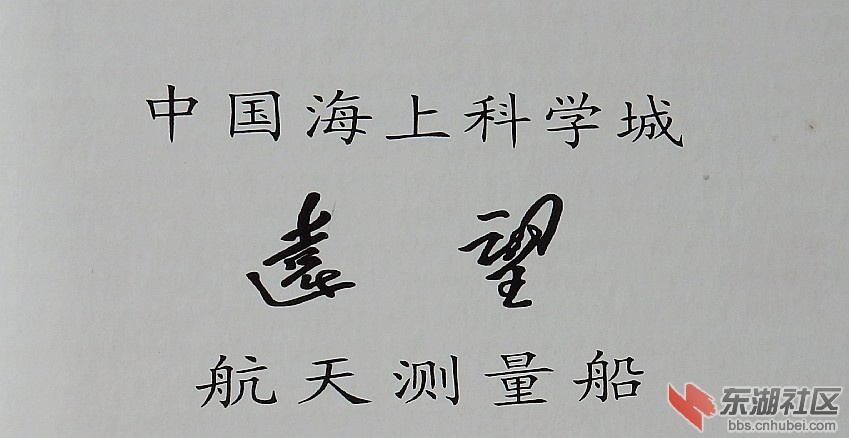 中国海上科学城
遠望
航天测量船
东湖社区
bbs.cnhubei.com